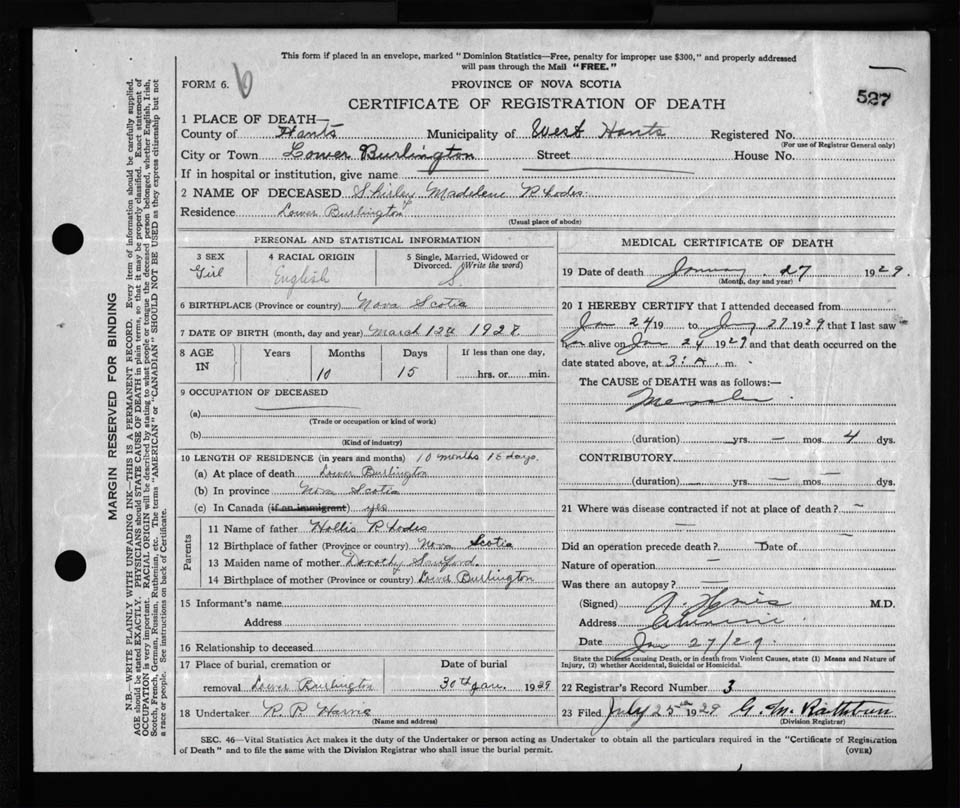 This form if placed in an envelope, marked "Dominion Statistics—Free, penalty for improper use $300," and properly addressed
will pass through the Mail "FREE."
FORM 6. 6
PROVINCE OF NOVA SCOTIA
527
CERTIFICATE OF REGISTRATION OF DEATH
1 PLACE OF DEATH—
County of Hants Municipality of West Hants Registered No.
(For use of Registrar General only)
City or Town Lower Burlington Street House No.
If in hospital or institution, give name
2 NAME OF DECEASED Shirley Madelene Rhodes
Residence Lower Burlington
(Usual place of abode)
PERSONAL AND STATISTICAL INFORMATION
3 SEX 4 RACIAL ORIGIN 5 Single, Married, Widowed or
Divorced. (Write the word)
Girl English S.
6 BIRTHPLACE (Province or country) Nova Scotia
7 DATE OF BIRTH (month, day and year) March 12th 1928
8 AGE IN Years Months Days If less than one day,
10 15 hrs. or min.
9 OCCUPATION OF DECEASED
(a)
(Trade or occupation or kind of work)
(b)
(Kind of industry)
10 LENGTH OF RESIDENCE (in years and months) 10 months 15 days.
(a) At place of death Lower Burlington
(b) In province Nova Scotia
(c) In Canada (if an immigrant) yes
Parents
11 Name of father Hollis Rhodes
12 Birthplace of father (Province or country) Nova Scotia
13 Maiden name of mother Dorothy Sanford.
14 Birthplace of mother (Province or country) Lower Burlington
15 Informant's name
Address
16 Relationship to deceased
17 Place of burial, cremation or Date of burial
removal Lower Burlington 30th Jan. 1929
18 Undertaker R. P. Harvie
(Name and address)
MEDICAL CERTIFICATE OF DEATH
19 Date of death January 27 1929.
(Month, day and year)
20 I HEREBY CERTIFY that I attended deceased from
Jan 24 19 to Jany 27 1929 that I last saw
her alive on Jan 24 1929 and that death occurred on the
date stated above, at 3: A. m.
The CAUSE OF DEATH was as follows:—
Measles
(duration) yrs. — mos. 4 dys.
CONTRIBUTORY.
(duration) yrs. — mos. — dys.
21 Where was disease contracted if not at place of death? —
Did an operation precede death? — Date of
Nature of operation —
Was there an autopsy? —
(Signed) M.D.
Address
Date Jan 27/29.
State the Disease causing Death, or in death from Violent Causes, state (1) Means and Nature of
Injury, (2) whether Accidental, Suicidal or Homicidal.
22 Registrar's Record Number 3
23 Filed July 25th 1929 G. M. Rathbun
(Division Registrar)
SEC. 46—Vital Statistics Act makes it the duty of the Undertaker or person acting as Undertaker to obtain all the particulars required in the "Certificate of Registration
of Death" and to file the same with the Division Registrar who shall issue the burial permit.
(OVER)
MARGIN RESERVED FOR BINDING
N.B.—WRITE PLAINLY WITH UNFADING INK—THIS IS A PERMANENT RECORD. Every item of information should be carefully supplied.
AGE should be stated EXACTLY. PHYSICIANS should STATE CAUSE OF DEATH in plain terms, so that it may be properly classified. Exact statement of
OCCUPATION is very important. RACIAL ORIGIN will be described by stating to what people or tongue the deceased person belonged, whether English, Irish,
Scotch, French, German, Russian, Ruthenian, etc. The terms "AMERICAN" or "CANADIAN" SHOULD NOT BE USED as they express citizenship but not
a race or people. See instructions on back of Certificate.